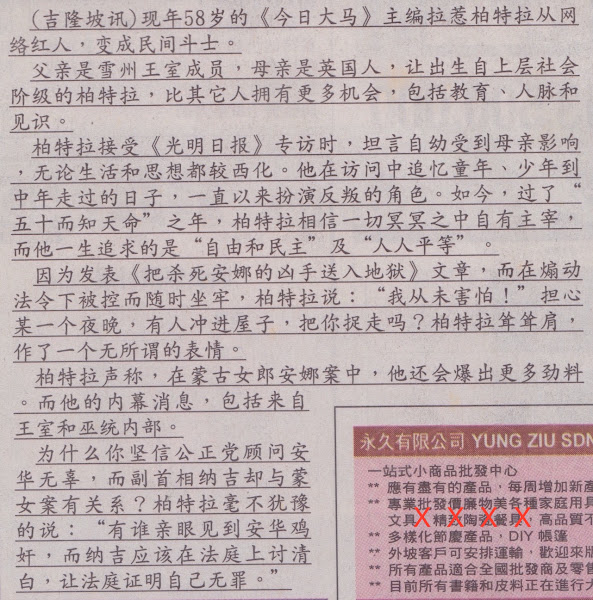 (吉隆坡讯)现年58岁的《今日大马》主编拉惹柏特拉从网
络红人，变成民间斗士。
父亲是雪州王室成员，母亲是英国人，让出生自上层社会
阶级的柏特拉，比其它人拥有更多机会，包括教育、人脉和
见识。
柏特拉接受《光明日报》专访时，坦言自幼受到母亲影响
，无论生活和思想都较西化。他在访问中追忆童年、少年到
中年走过的日子，一直以来扮演反叛的角色。如今，过了“
五十而知天命”之年，柏特拉相信一切冥冥之中自有主宰，
而他一生追求的是“自由和民主”及“人人平等”。
因为发表《把杀死安娜的凶手送入地狱》文章，而在煽动
法令下被控而随时坐牢，柏特拉说：“我从未害怕！”担心
某一个夜晚，有人冲进屋子，把你捉走吗？柏特拉耸耸肩，
作了一个无所谓的表情。
柏特拉声称，在蒙古女郎安娜案中，他还会爆出更多劲料
。而他的内幕消息，包括来自
王室和巫统内部。
为什么你坚信公正党顾问安
华无辜，而副首相纳吉却与蒙
女案有关系？柏特拉毫不犹豫
的说：“有谁亲眼见到安华鸡
奸，而纳吉应该在法庭上讨清
白，让法庭证明自己无罪。”
永久有限公司 YUNG ZIU SDN
一站式小商品批發中心
** 應有盡有的產品，每周增加新產
** 專業批發價廉物美各種家庭用具
文具、精致陶瓷餐具，高品質不
X X X X
** 多樣化節慶產品，DIY 帳篷
** 外坡客戶可安排運輸，歡迎來版
** 所有產品適合全國批發商及零售
** 目前所有書籍和皮料正在進行大